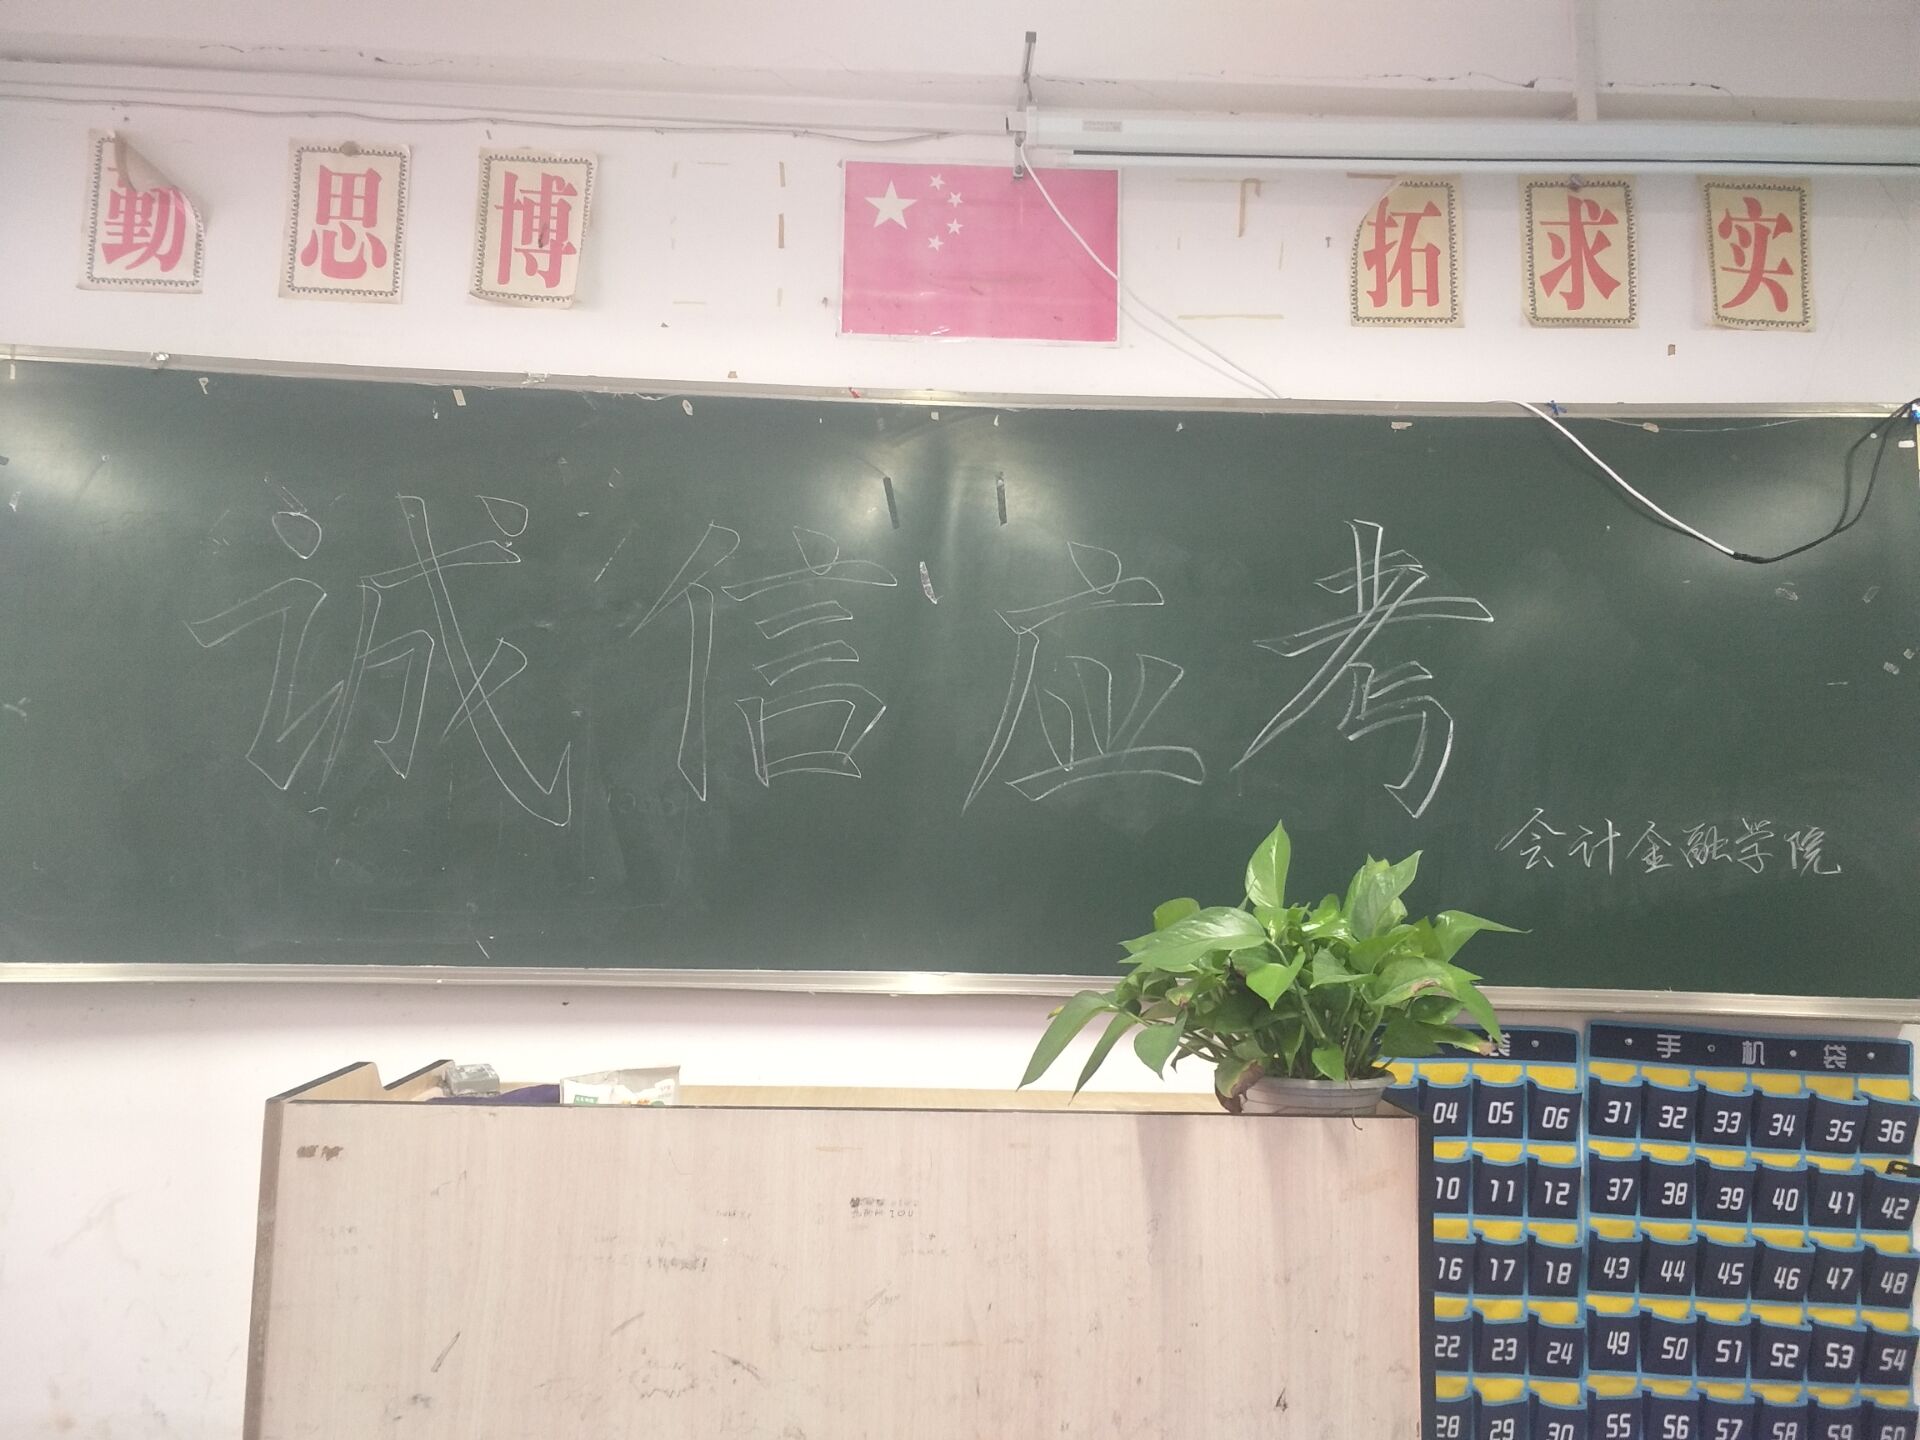 勤 思 博 拓 求 实
诚信应考
会计金融学院
袋 手机袋
04 05 06 31 32 33 34 35 36
10 11 12 37 38 39 40 41 42
16 17 18 43 44 45 46 47 48
22 23 24 49 50 51 52 53 54
28 29 30 55 56 57 58 59 60